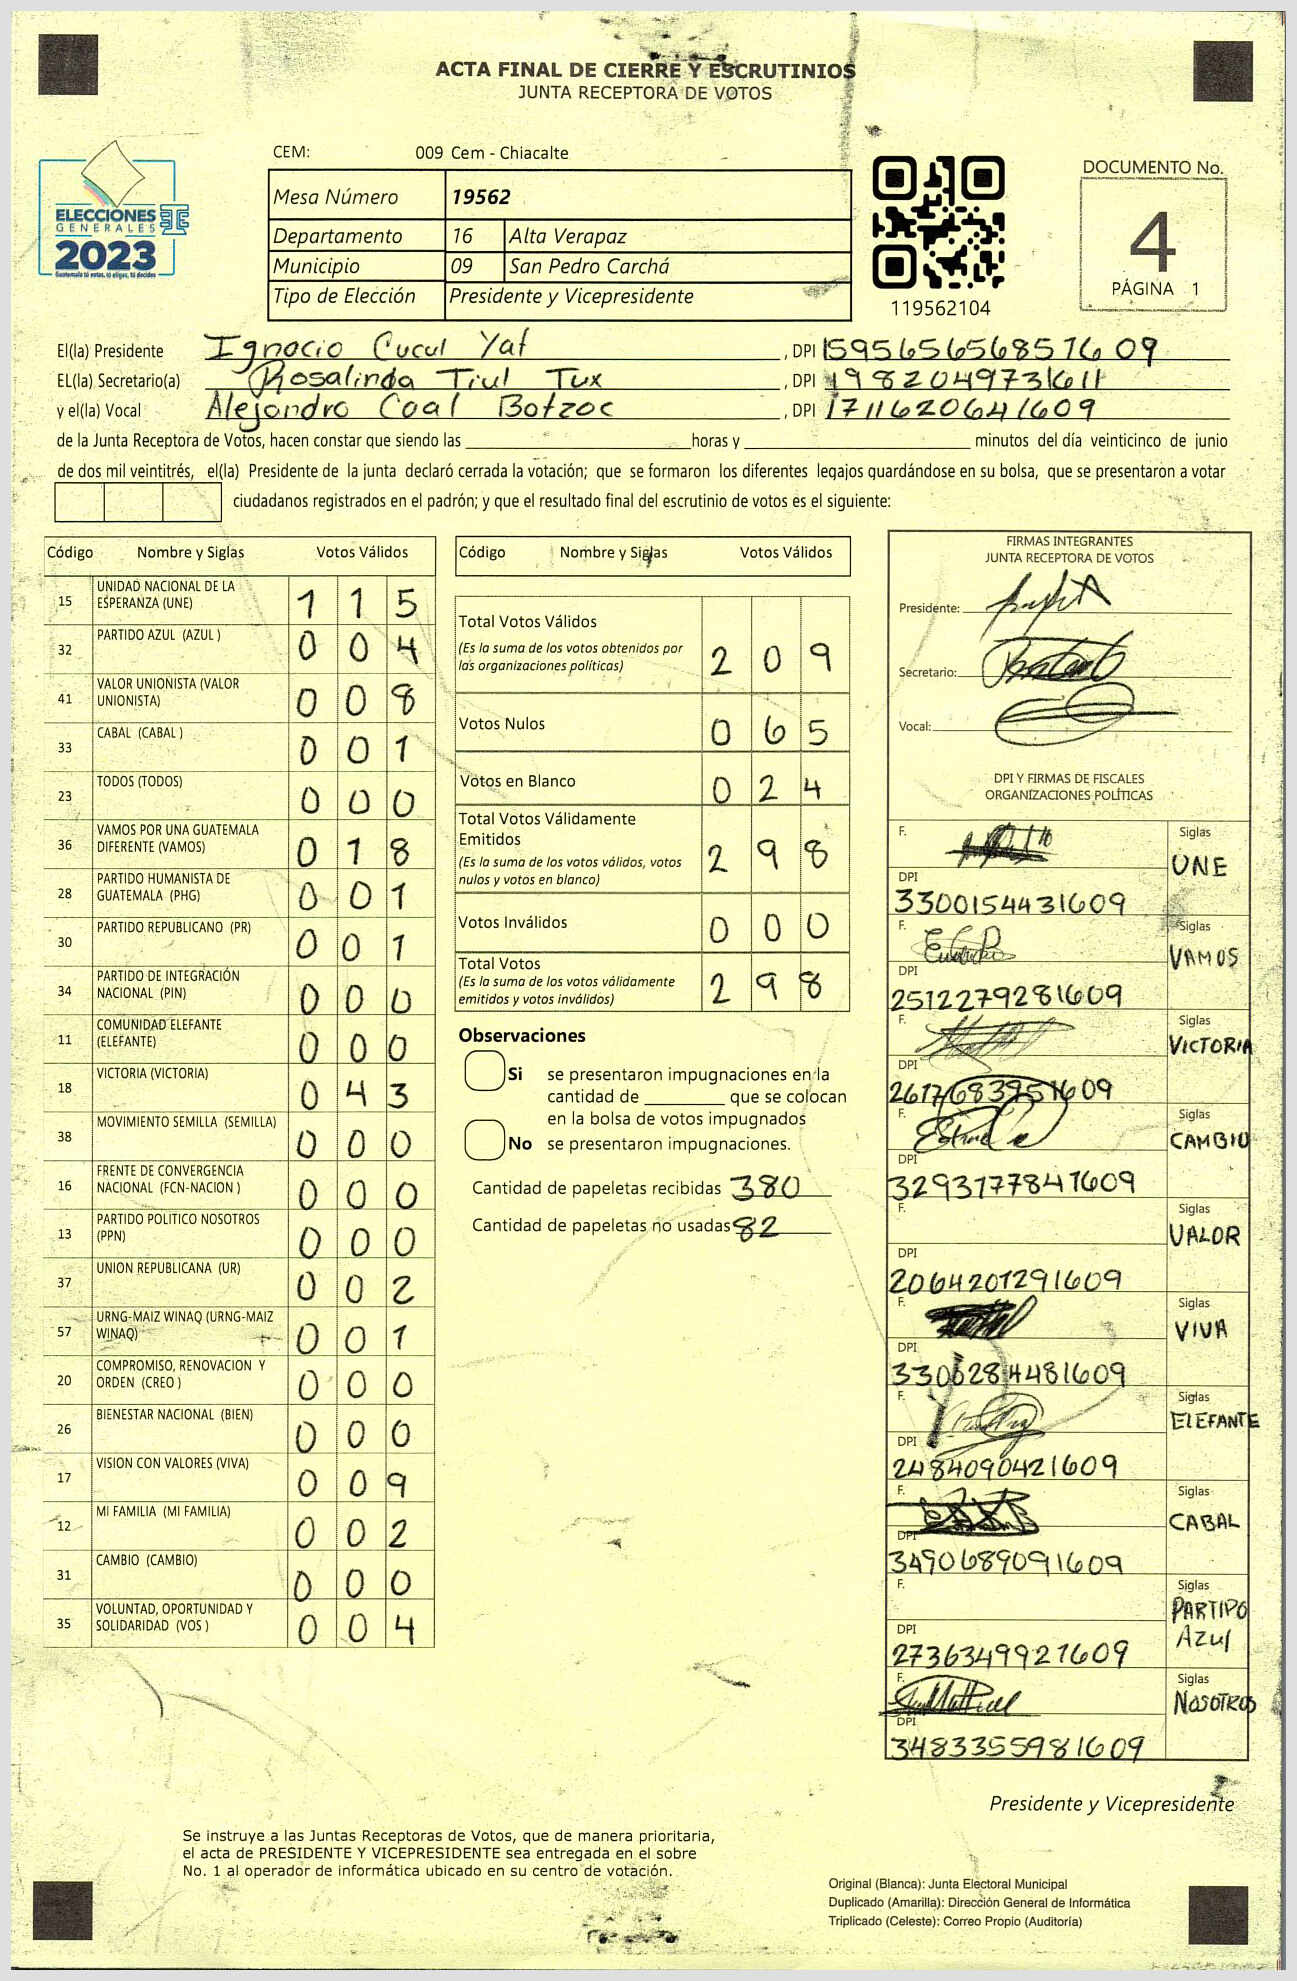 ACTA FINAL DE CIERRE Y ESCRUTINIOS
JUNTA RECEPTORA DE VOTOS
ELECCIONES
GENERALES
2023
Guatemala tú votas, tú eliges, tú decides
CEM: 009 Cem - Chiacalte
Mesa Número 19562
Departamento 16 Alta Verapaz
Municipio 09 San Pedro Carchá
Tipo de Elección Presidente y Vicepresidente
119562104
DOCUMENTO No.
4
PÁGINA 1
El(la) Presidente Ignacio Cucul Yat , DPI 1595656568571609
EL(la) Secretario(a) Rosalinda Tiul Tux , DPI 1982049731611
y el(la) Vocal Alejandro Coal Botzoc , DPI 1711620641609
de la Junta Receptora de Votos, hacen constar que siendo las horas y minutos del día veinticinco de junio
de dos mil veintitrés, el(la) Presidente de la junta declaró cerrada la votación; que se formaron los diferentes legajos guardándose en su bolsa, que se presentaron a votar
ciudadanos registrados en el padrón; y que el resultado final del escrutinio de votos es el siguiente:
Código Nombre y Siglas Votos Válidos
15 UNIDAD NACIONAL DE LA ESPERANZA (UNE) 1 1 5
32 PARTIDO AZUL (AZUL ) 0 0 4
41 VALOR UNIONISTA (VALOR UNIONISTA) 0 0 8
33 CABAL (CABAL ) 0 0 1
23 TODOS (TODOS) 0 0 0
36 VAMOS POR UNA GUATEMALA DIFERENTE (VAMOS) 0 1 8
28 PARTIDO HUMANISTA DE GUATEMALA (PHG) 0 0 1
30 PARTIDO REPUBLICANO (PR) 0 0 1
34 PARTIDO DE INTEGRACIÓN NACIONAL (PIN) 0 0 0
11 COMUNIDAD ELEFANTE (ELEFANTE) 0 0 0
18 VICTORIA (VICTORIA) 0 4 3
38 MOVIMIENTO SEMILLA (SEMILLA) 0 0 0
16 FRENTE DE CONVERGENCIA NACIONAL (FCN-NACION ) 0 0 0
13 PARTIDO POLITICO NOSOTROS (PPN) 0 0 0
37 UNION REPUBLICANA (UR) 0 0 2
57 URNG-MAIZ WINAQ (URNG-MAIZ WINAQ) 0 0 1
20 COMPROMISO, RENOVACION Y ORDEN (CREO ) 0 0 0
26 BIENESTAR NACIONAL (BIEN) 0 0 0
17 VISION CON VALORES (VIVA) 0 0 9
12 MI FAMILIA (MI FAMILIA) 0 0 2
31 CAMBIO (CAMBIO) 0 0 0
35 VOLUNTAD, OPORTUNIDAD Y SOLIDARIDAD (VOS ) 0 0 4
Código Nombre y Siglas Votos Válidos
Total Votos Válidos
(Es la suma de los votos obtenidos por
las organizaciones políticas) 2 0 9
Votos Nulos 0 6 5
Votos en Blanco 0 2 4
Total Votos Válidamente
Emitidos
(Es la suma de los votos válidos, votos
nulos y votos en blanco) 2 9 8
Votos Inválidos 0 0 0
Total Votos
(Es la suma de los votos válidamente
emitidos y votos inválidos) 2 9 8
Observaciones
Si se presentaron impugnaciones en la
cantidad de que se colocan
en la bolsa de votos impugnados
No se presentaron impugnaciones.
Cantidad de papeletas recibidas 380
Cantidad de papeletas no usadas 82
FIRMAS INTEGRANTES
JUNTA RECEPTORA DE VOTOS
Presidente:
Secretario:
Vocal:
DPI Y FIRMAS DE FISCALES
ORGANIZACIONES POLÍTICAS
F. Siglas
UNE
DPI
3300154431609
F. Siglas
VAMOS
DPI
2512279281609
F. Siglas
VICTORIA
DPI
2617683951609
F. Siglas
CAMBIO
DPI
3293177841609
F. Siglas
VALOR
DPI
2064201291609
F. Siglas
VIVA
DPI
3306284481609
F. Siglas
ELEFANTE
DPI
2484090421609
F. Siglas
CABAL
DPI
3490689091609
F. Siglas
PARTIDO
Azul
DPI
2736349921609
F. Siglas
NOSOTROS
DPI
3483355981609
Presidente y Vicepresidente
Se instruye a las Juntas Receptoras de Votos, que de manera prioritaria,
el acta de PRESIDENTE Y VICEPRESIDENTE sea entregada en el sobre
No. 1 al operador de informática ubicado en su centro de votación.
Original (Blanca): Junta Electoral Municipal
Duplicado (Amarilla): Dirección General de Informática
Triplicado (Celeste): Correo Propio (Auditoría)